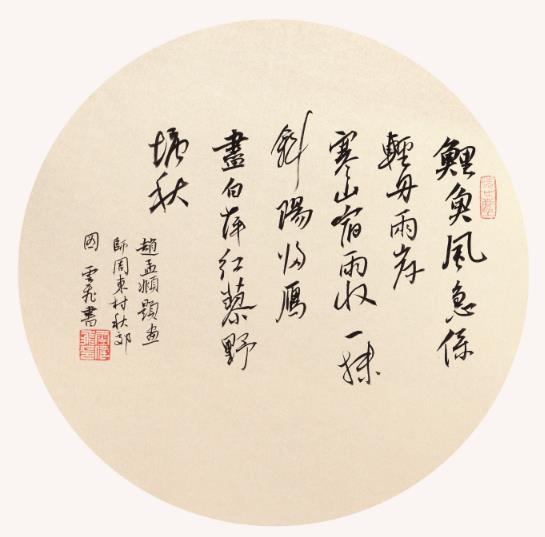 鯉魚風急係
輕舟兩岸
寒山宿雨收一抹
斜陽归雁
盡白苹红蓼野
塘秋
趙孟頫題畫
師周東村秋郊
图 雲飛書